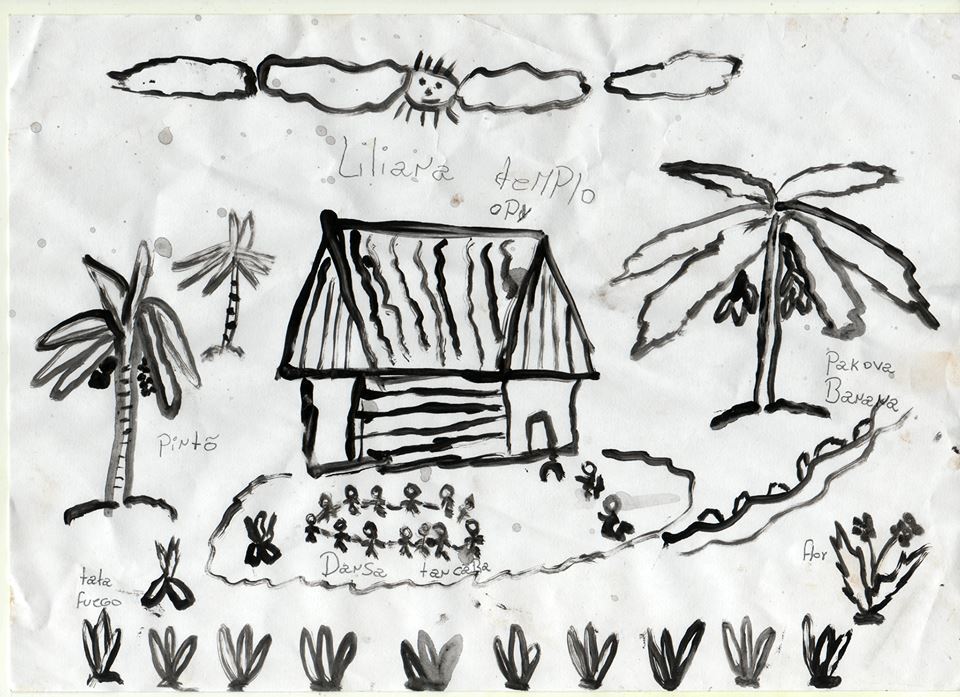 Liliana templo
opy
Pakova
Banana
Pintõ
Dansa
flor
tata
fuego